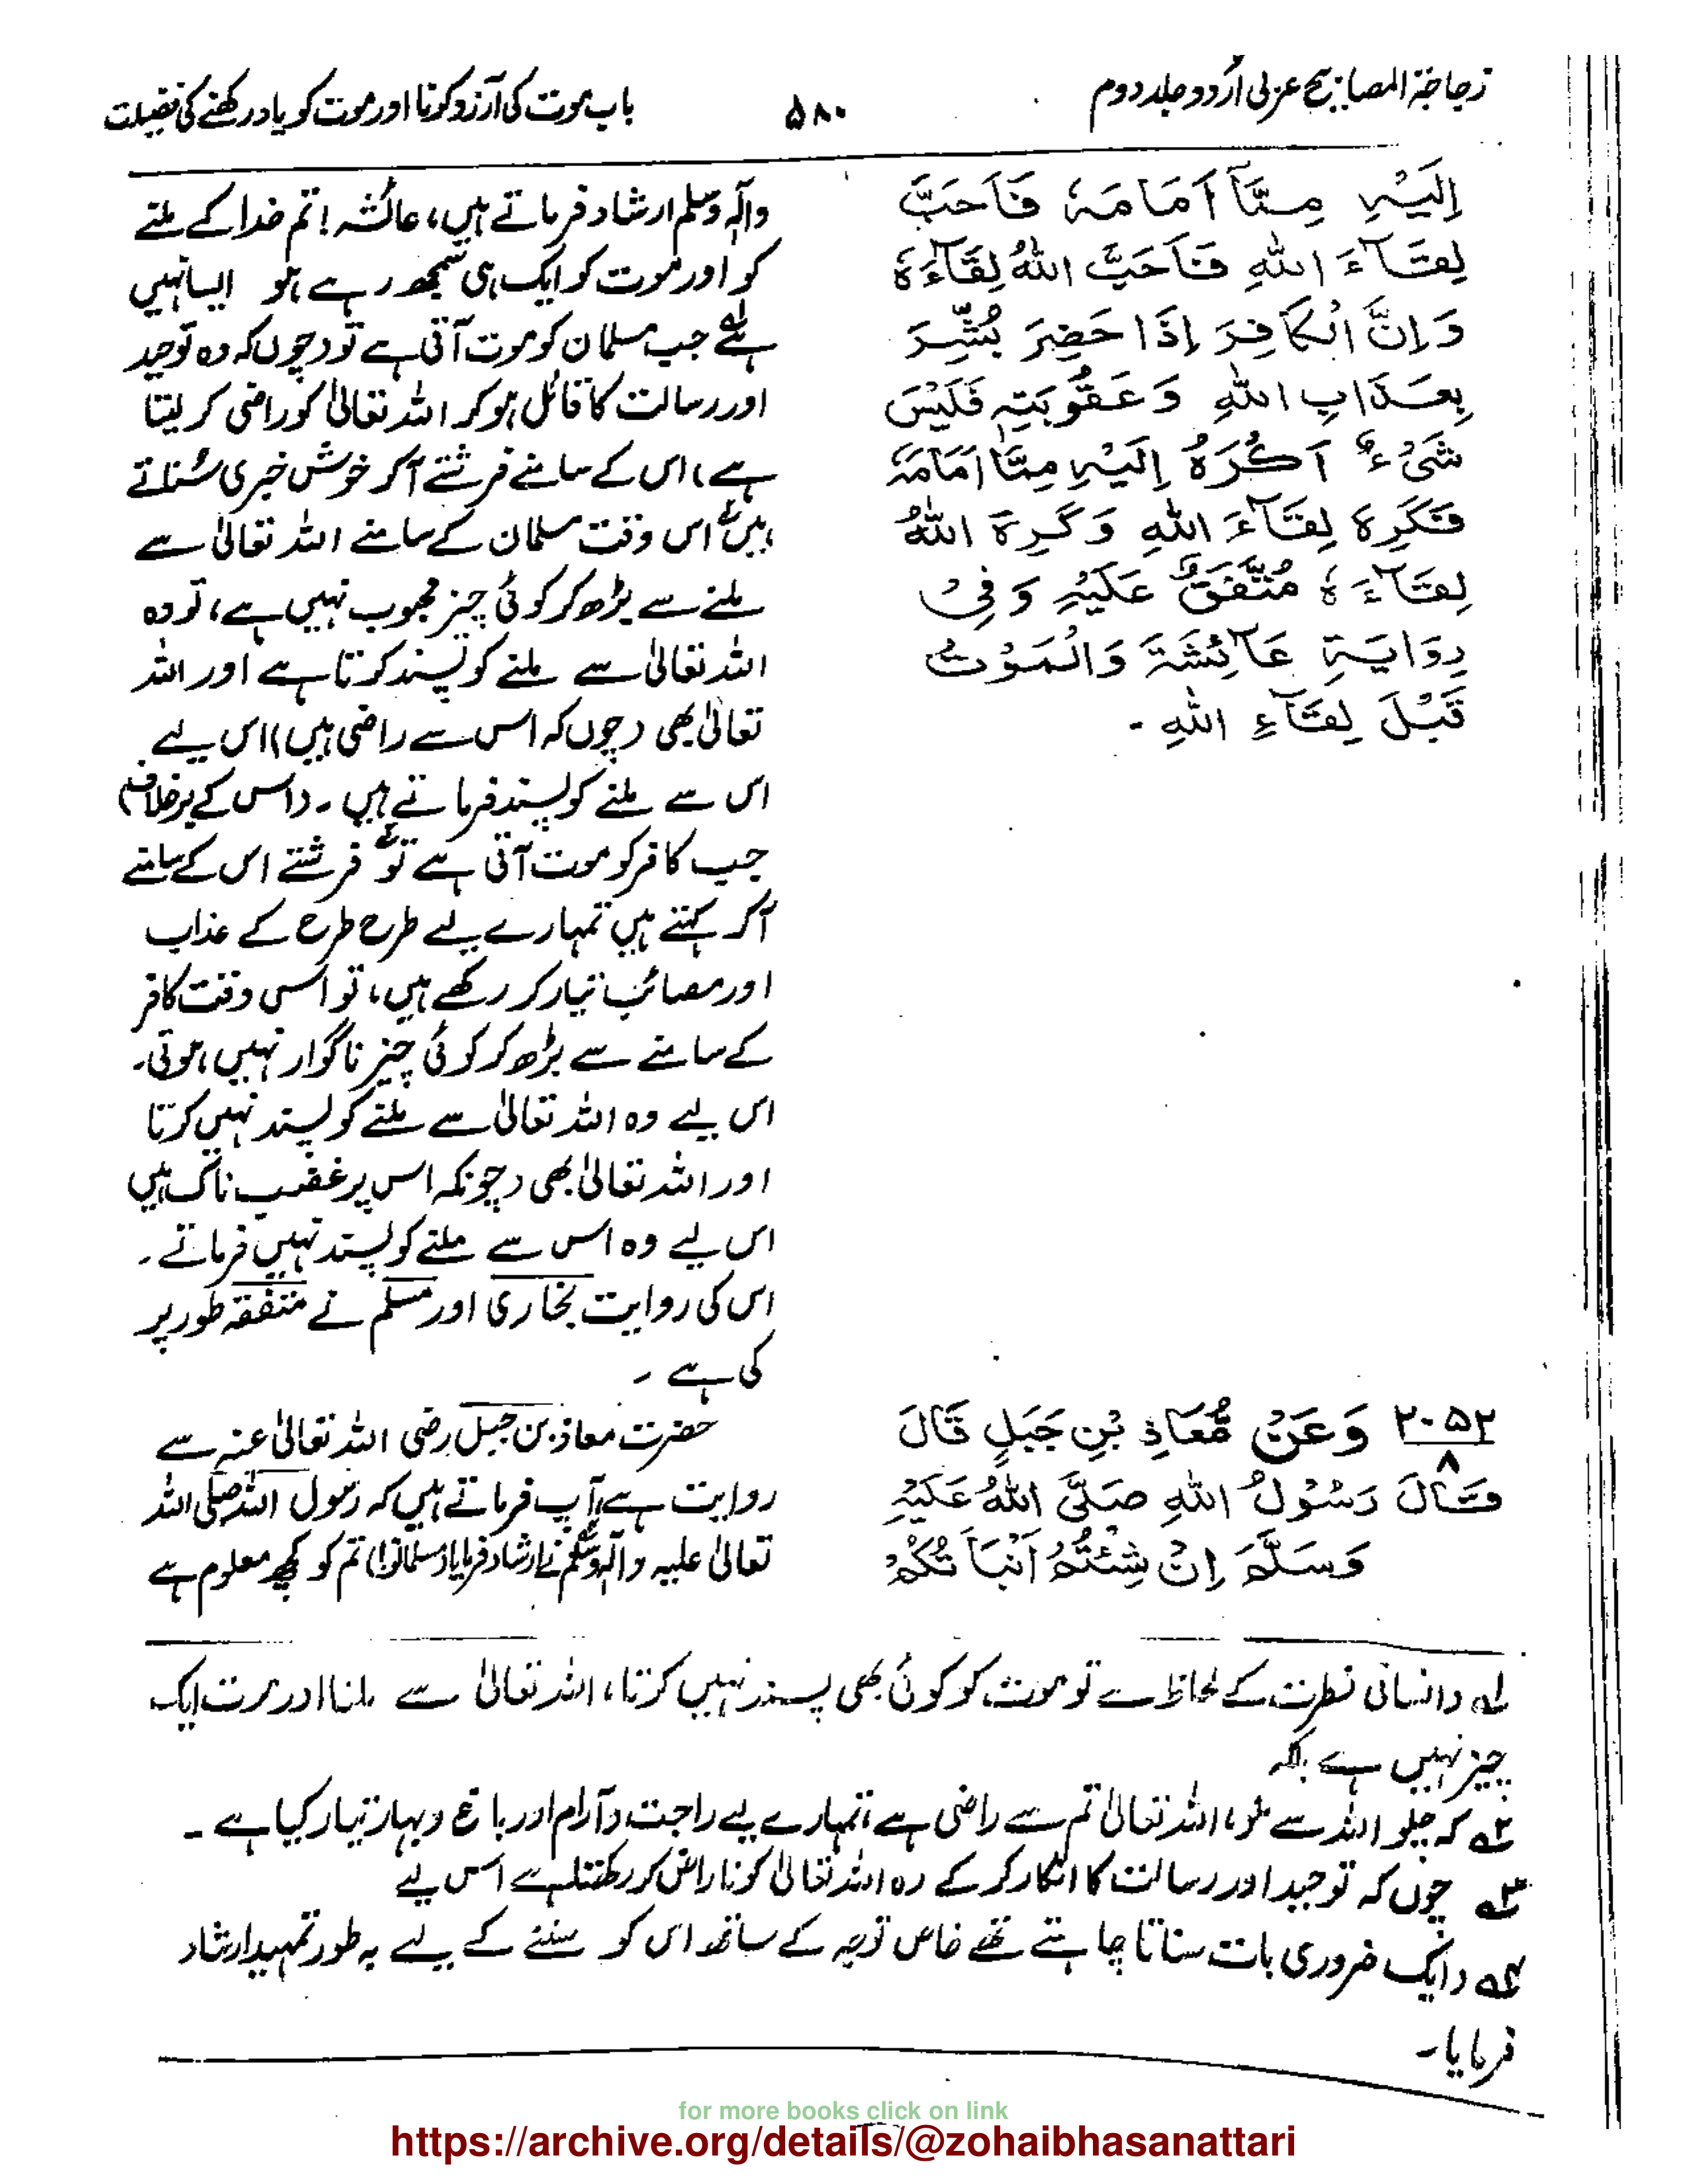 زجاجۃ المصابیح عربی اُردو جلد دوم
۵۸۰
باب موت کی آرزو کرنا اور موت کو یاد رکھنے کی فضیلت
اِلَیْہِ مِمَّآ اَمَامَہٗ فَاَحَبَّ
لِقَآءَ اللہِ فَاَحَبَّ اللہُ لِقَآءَہٗ
وَاِنَّ الْکَافِرَ اِذَا حَضِرَ بُشِّرَ
بِعَذَابِ اللہِ وَعَقُوْبَتِہٖ فَلَیْسَ
شَیْءٌ اَکْرَہُ اِلَیْہِ مِمَّا اَمَامَہٗ
فَکَرِہَ لِقَآءَ اللہِ وَکَرِہَ اللہُ
لِقَآءَہٗ مُتَّفَقٌ عَلَیْہِ وَفِیْ
رِوَایَۃِ عَائِشَۃَ وَالْمَوْتُ
قَبْلَ لِقَآءِ اللہِ ۔
والہٖ وسلم ارشاد فرماتے ہیں، عائشہ! تم خدا کے ملنے
کو اور موت کو ایک ہی سمجھ رہے ہو ایسا نہیں
ہےلہ جب مسلمان کو موت آتی ہے تو (چوں کہ وہ توحید
اور رسالت کا قائل ہو کر اللہ تعالیٰ کو راضی کر لیتا
ہے) اس کے سامنے فرشتے آ کر خوش خبری سُناتے
ہیں۲ اس وقت مسلمان کے سامنے اللہ تعالیٰ سے
ملنے سے بڑھ کر کوئی چیز محبوب نہیں ہے، تو وہ
اللہ تعالیٰ سے ملنے کو پسند کرتا ہے اور اللہ
تعالیٰ بھی (چوں کہ اس سے راضی ہیں) اس لیے
اس سے ملنے کو پسند فرماتے ہیں ۔ (اس کے برخلاف)
جب کافر کو موت آتی ہے تو۳ فرشتے اس کے سامنے
آ کر کہتے ہیں تمہارے لیے طرح طرح کے عذاب
اور مصائب تیار کر رکھے ہیں، تو اس وقت کافر
کے سامنے سے بڑھ کر کوئی چیز ناگوار نہیں ہوتی۔
اس لیے وہ اللہ تعالیٰ سے ملنے کو پسند نہیں کرتا
اور اللہ تعالیٰ بھی (چونکہ اس پر غضب ناک ہیں
اس لیے وہ اس سے ملنے کو پسند نہیں فرماتے ۔
اس کی روایت بخاری اور مسلم نے متفقہ طور پر
کی ہے ۔
۲۰۵۲ وَعَنْ مُّعَاذِ بْنِ جَبَلٍ قَالَ
۸
قَالَ رَسُوْلُ اللہِ صَلَّی اللہُ عَلَیْہِ
وَسَلَّمَ اِنْ شِئْتُمْ اَنْبَأَتُکُمْ
حضرت معاذ بن جبل رضی اللہ تعالیٰ عنہ سے
روایت ہے، آپ فرماتے ہیں کہ رسول اللہ صلی اللہ
تعالیٰ علیہ والہٖ وسلم نے ارشاد فرمایا (مسلمانو!) تم کو کچھ معلوم ہے
لہ (انسانی فطرت کے لحاظ سے تو موت کو کوئی بھی پسند نہیں کرتا، اللہ تعالیٰ سے ملنا اور موت ایک
چیز نہیں ہے بلکہ
۲ہ کہ چلو اللہ سے ملو، اللہ تعالیٰ تم سے راضی ہے، تمہارے لیے راحت و آرام اور باغ و بہار تیار کیا ہے ۔
۳ہ چوں کہ توحید اور رسالت کا انکار کر کے وہ اللہ تعالیٰ کو ناراض کر رکھتا ہے اس لیے
۴ہ (ایک ضروری بات سنانا چاہتے تھے خاص توجہ کے ساتھ اس کو سننے کے لیے بہ طور تمہید ارشاد
فرمایا۔
for more books click on link
https://archive.org/details/@zohaibhasanattari